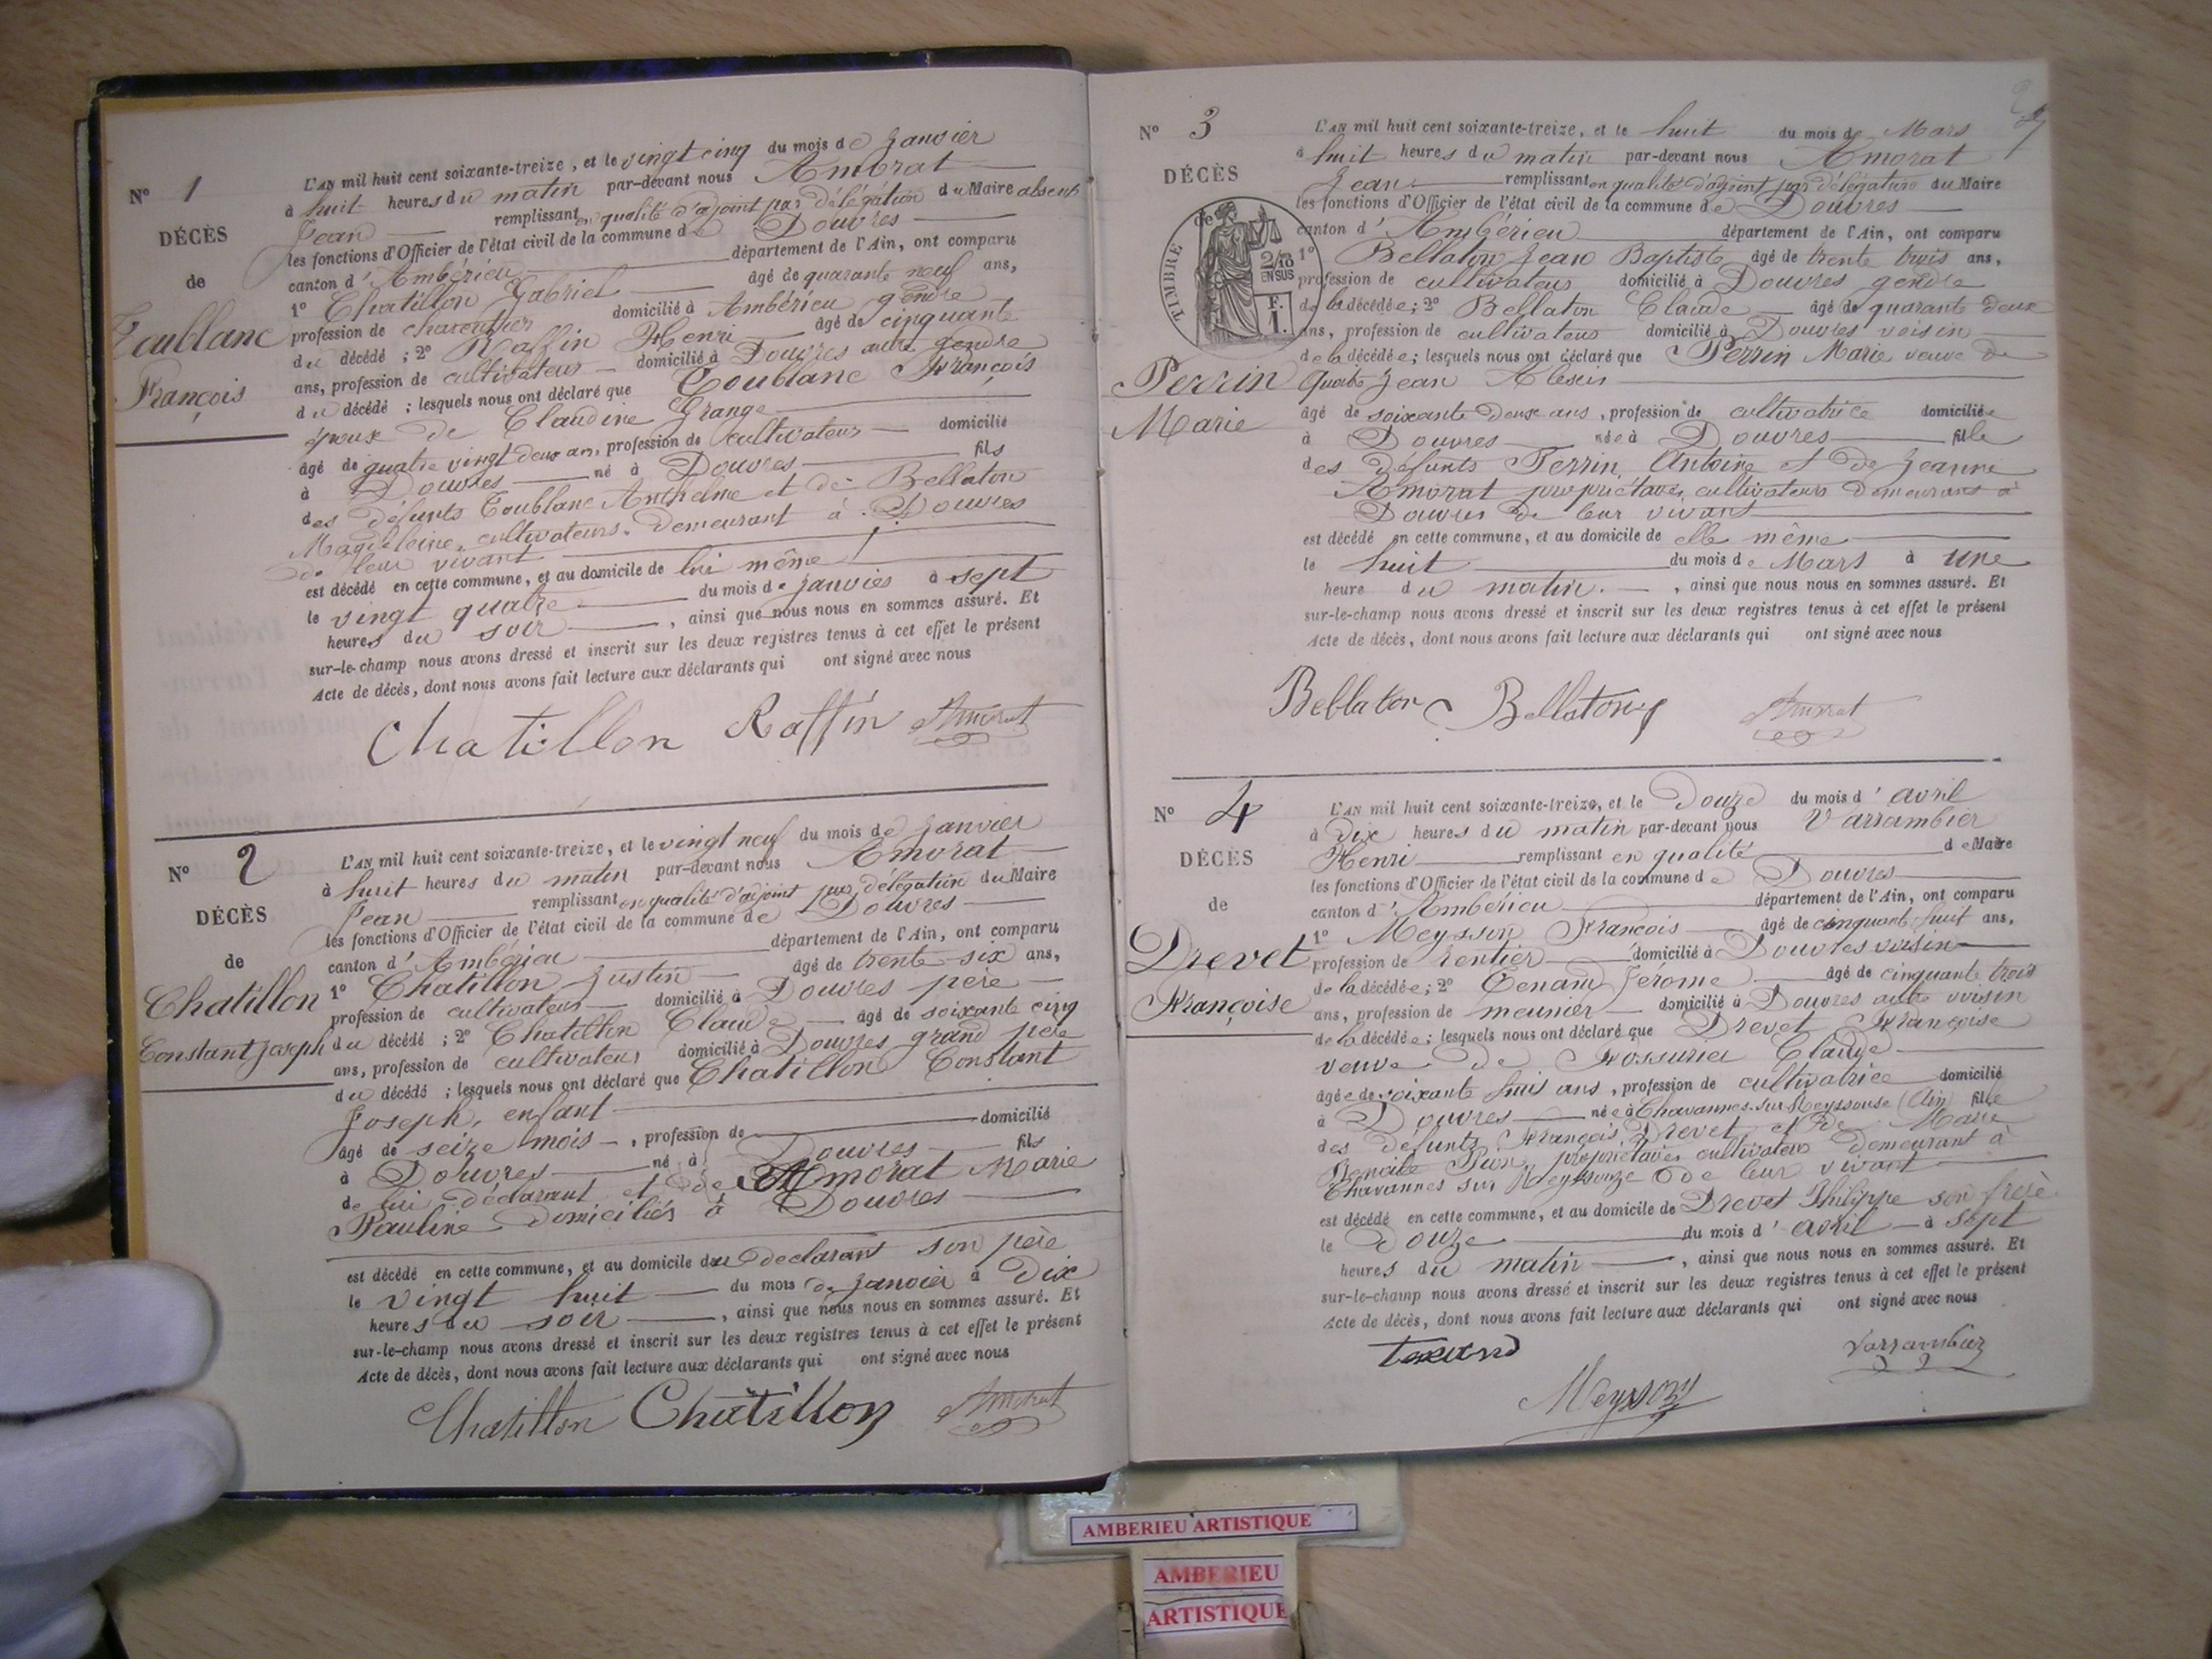 N° 1
DÉCÈS
de
Toublanc
François
L'AN mil huit cent soixante-treize, et le vingt cinq du mois de Janvier
à huit heures du matin par-devant nous Amorat
Jean remplissant en qualité d'adjoint par délégation du Maire absent
les fonctions d'Officier de l'état civil de la commune de Douvres
canton d'Ambérieu département de l'Ain, ont comparu
1° Chatillon Gabriel âgé de quarante neuf ans,
profession de charcutier domicilié à Ambérieu gendre
du décédé ; 2° Raffin Henri âgé de cinquante
ans, profession de cultivateur domicilié à Douvres autre gendre
du décédé ; lesquels nous ont déclaré que Toublanc François
époux de Claudine Grange
âgé de quatre vingt deux ans, profession de cultivateur domicilié
à Douvres né à Douvres fils
des défunts Toublanc Anthelme et de Bellaton
Magdeleine, cultivateurs demeurant à Douvres
de leur vivant
est décédé en cette commune, et au domicile de lui même
le vingt quatre du mois de Janvier à sept
heures du soir, ainsi que nous nous en sommes assuré. Et
sur-le-champ nous avons dressé et inscrit sur les deux registres tenus à cet effet le présent
Acte de décès, dont nous avons fait lecture aux déclarants qui ont signé avec nous
Chatillon Raffin Amorat
N° 2
DÉCÈS
de
Chatillon
Constant Joseph
L'AN mil huit cent soixante-treize, et le vingt neuf du mois de Janvier
à huit heures du matin par-devant nous Amorat
Jean remplissant en qualité d'adjoint par délégation du Maire
les fonctions d'Officier de l'état civil de la commune de Douvres
canton d'Ambérieu département de l'Ain, ont comparu
1° Chatillon Justin âgé de trente-six ans,
profession de cultivateur domicilié à Douvres père
du décédé ; 2° Chatillon Claude âgé de soixante cinq
ans, profession de cultivateur domicilié à Douvres grand père
du décédé ; lesquels nous ont déclaré que Chatillon Constant
Joseph, enfant
âgé de seize mois, profession de domicilié
à Douvres né à Douvres fils
de lui déclarant et de Amorat Marie
Pauline domiciliés à Douvres
est décédé en cette commune, et au domicile du déclarant son père
le vingt huit du mois de Janvier à Dix
heures du soir, ainsi que nous nous en sommes assuré. Et
sur-le-champ nous avons dressé et inscrit sur les deux registres tenus à cet effet le présent
Acte de décès, dont nous avons fait lecture aux déclarants qui ont signé avec nous
Chatillon Chatillon Amorat
N° 3
DÉCÈS
de
TIMBRE
2/10
EN SUS
1 F.
Perrin
Marie
L'AN mil huit cent soixante-treize, et le huit du mois de Mars
à huit heures du matin par-devant nous Amorat
Jean remplissant en qualité d'adjoint par délégation du Maire
les fonctions d'Officier de l'état civil de la commune de Douvres
canton d'Ambérieu département de l'Ain, ont comparu
1° Bellaton Jean Baptiste âgé de trente trois ans,
profession de cultivateur domicilié à Douvres gendre
de la décédée ; 2° Bellaton Claude âgé de quarante deux
ans, profession de cultivateur domicilié à Douvres voisin
de la décédée ; lesquels nous ont déclaré que Perrin Marie veuve de
Jean Alexis
âgé de soixante deux ans, profession de cultivatrice domiciliée
à Douvres née à Douvres fille
des défunts Perrin Antoine et de Jeanne
Amorat propriétaires cultivateurs demeurans à
Douvres de leur vivant
est décédé en cette commune, et au domicile de elle même
le huit du mois de Mars à une
heure du matin, ainsi que nous nous en sommes assuré. Et
sur-le-champ nous avons dressé et inscrit sur les deux registres tenus à cet effet le présent
Acte de décès, dont nous avons fait lecture aux déclarants qui ont signé avec nous
Bellaton Bellaton Amorat
N° 4
DÉCÈS
de
Drevet
Françoise
L'AN mil huit cent soixante-treize, et le Douze du mois d'avril
à Dix heures du matin par-devant nous Varrambier
Henri remplissant en qualité de Maire
les fonctions d'Officier de l'état civil de la commune de Douvres
canton d'Ambérieu département de l'Ain, ont comparu
1° Meysson François âgé de cinquante huit ans,
profession de rentier domicilié à Douvres voisin
de la décédée ; 2° Tenand Jérome âgé de cinquante trois
ans, profession de meunier domicilié à Douvres autre voisin
de la décédée ; lesquels nous ont déclaré que Drevet Françoise
veuve de Claude
âgée de soixante huit ans, profession de cultivatrice domicilié
à Douvres née à Chavannes-sur-Reyssouse (Ain) fille
des défunts François Drevet et de Marie
propriétaires cultivateurs demeurant à
Chavannes sur Reyssouze de leur vivant
est décédé en cette commune, et au domicile de Drevet Philippe son frère
le Douze du mois d'avril à sept
heures du matin, ainsi que nous nous en sommes assuré. Et
sur-le-champ nous avons dressé et inscrit sur les deux registres tenus à cet effet le présent
Acte de décès, dont nous avons fait lecture aux déclarants qui ont signé avec nous
Tenand Varrambier
Meysson
AMBERIEU ARTISTIQUE
AMBERIEU
ARTISTIQUE